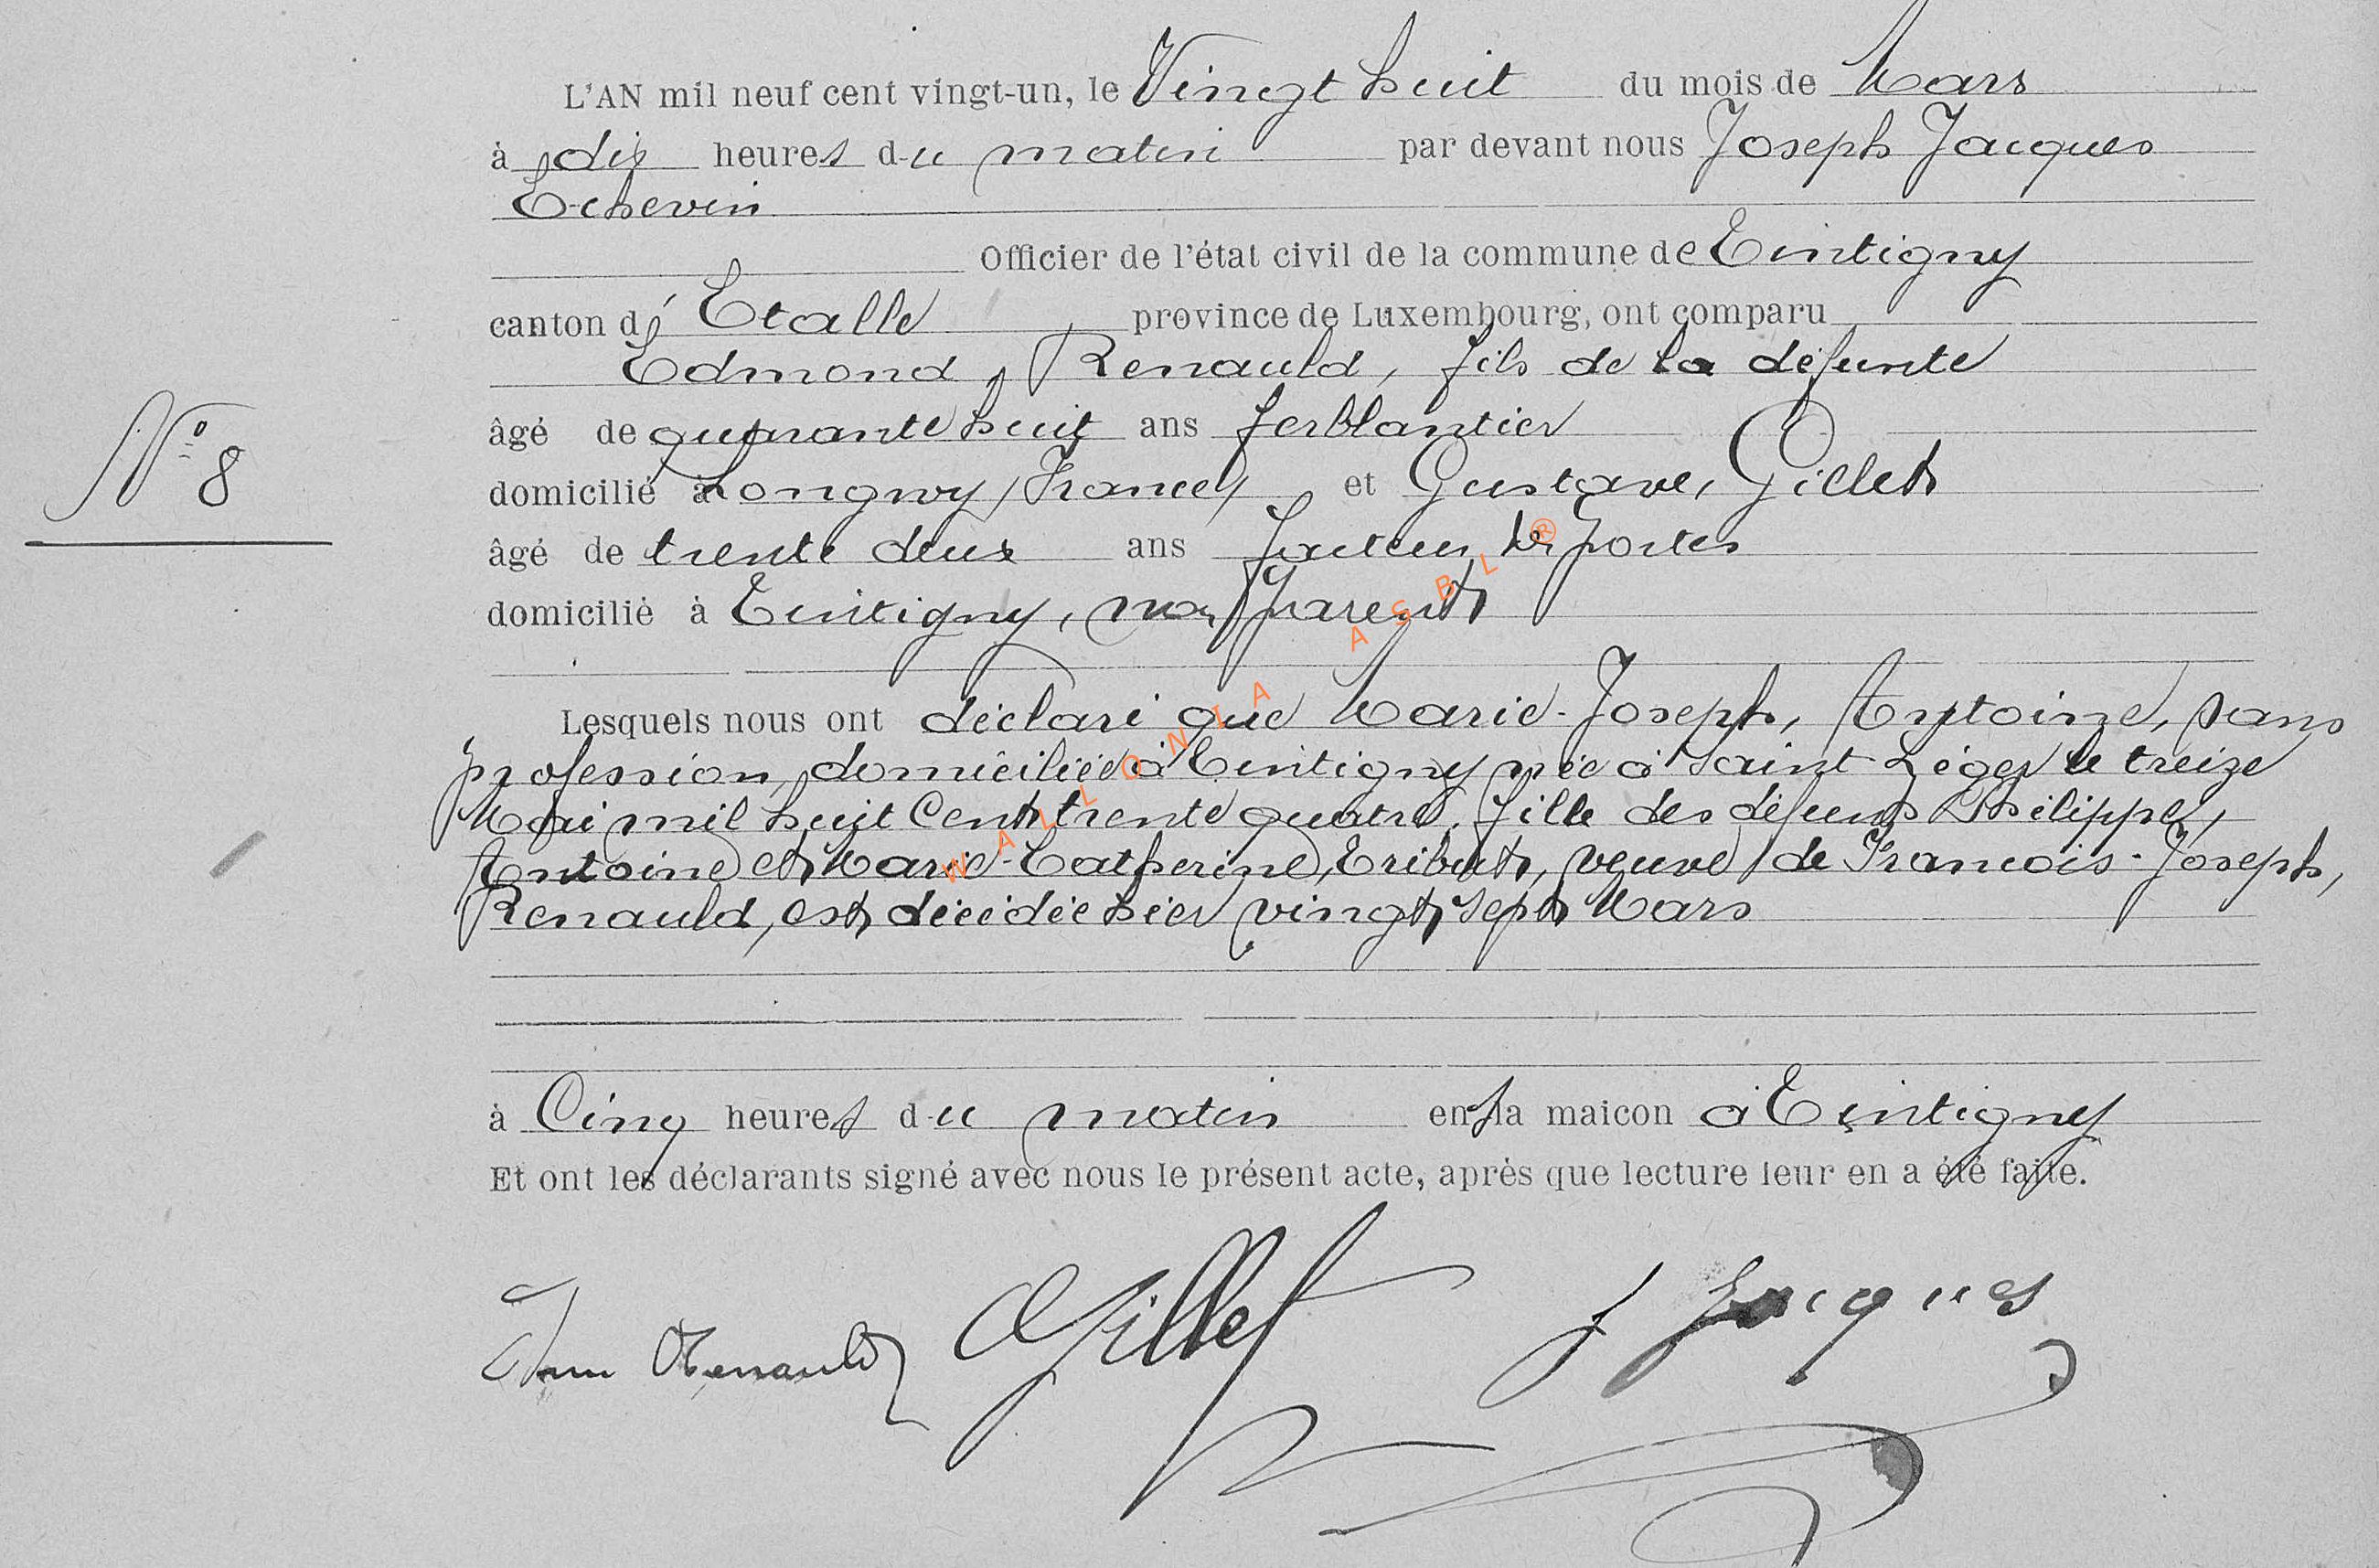 L'AN mil neuf cent vingt-un, le Vingt huit du mois de Mars
à dix heures du matin par devant nous Joseph Jacques
Echevin
Officier de l'état civil de la commune de Tintigny
canton d'Etalle province de Luxembourg, ont comparu
Edmond, Renauld, fils de la défunte
N° 8
âgé de quarante huit ans ferblantier
domicilié à Longwy (France) et Gustave, Gillet
âgé de trente deux ans facteur des postes
domicilié à Tintigny, non parent
Lesquels nous ont déclaré que Marie-Joseph, Antoine, sans
profession, domiciliée à Tintigny née à Saint-Léger le treize
Mai mil huit Cent trente quatre, fille des défunts Philippe,
Antoine et Marie-Catherine, Tribut, veuve de François-Joseph,
Renauld, est décédée hier vingt sept Mars
à Cinq heures du matin en sa maison à Tintigny
Et ont les déclarants signé avec nous le présent acte, après que lecture leur en a été faite.
Renauld Gillet J Jacques
WALLONIA ASBL ®